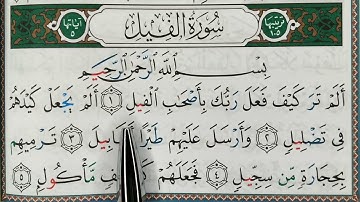 ترتيبها ١٠٥ سُورَةُ الْفِيلِ آياتها ٥
بِسْمِ اللَّهِ الرَّحْمَٰنِ الرَّحِيمِ
أَلَمْ تَرَ كَيْفَ فَعَلَ رَبُّكَ بِأَصْحَٰبِ الْفِيلِ ١ أَلَمْ يَجْعَلْ كَيْدَهُمْ
فِى تَضْلِيلٍ ٢ وَأَرْسَلَ عَلَيْهِمْ طَيْرًا ٣ تَرْمِيهِم
بِحِجَارَةٍ مِّن سِجِّيلٍ ٤ فَجَعَلَهُمْ مَّأْكُولٍ ٥